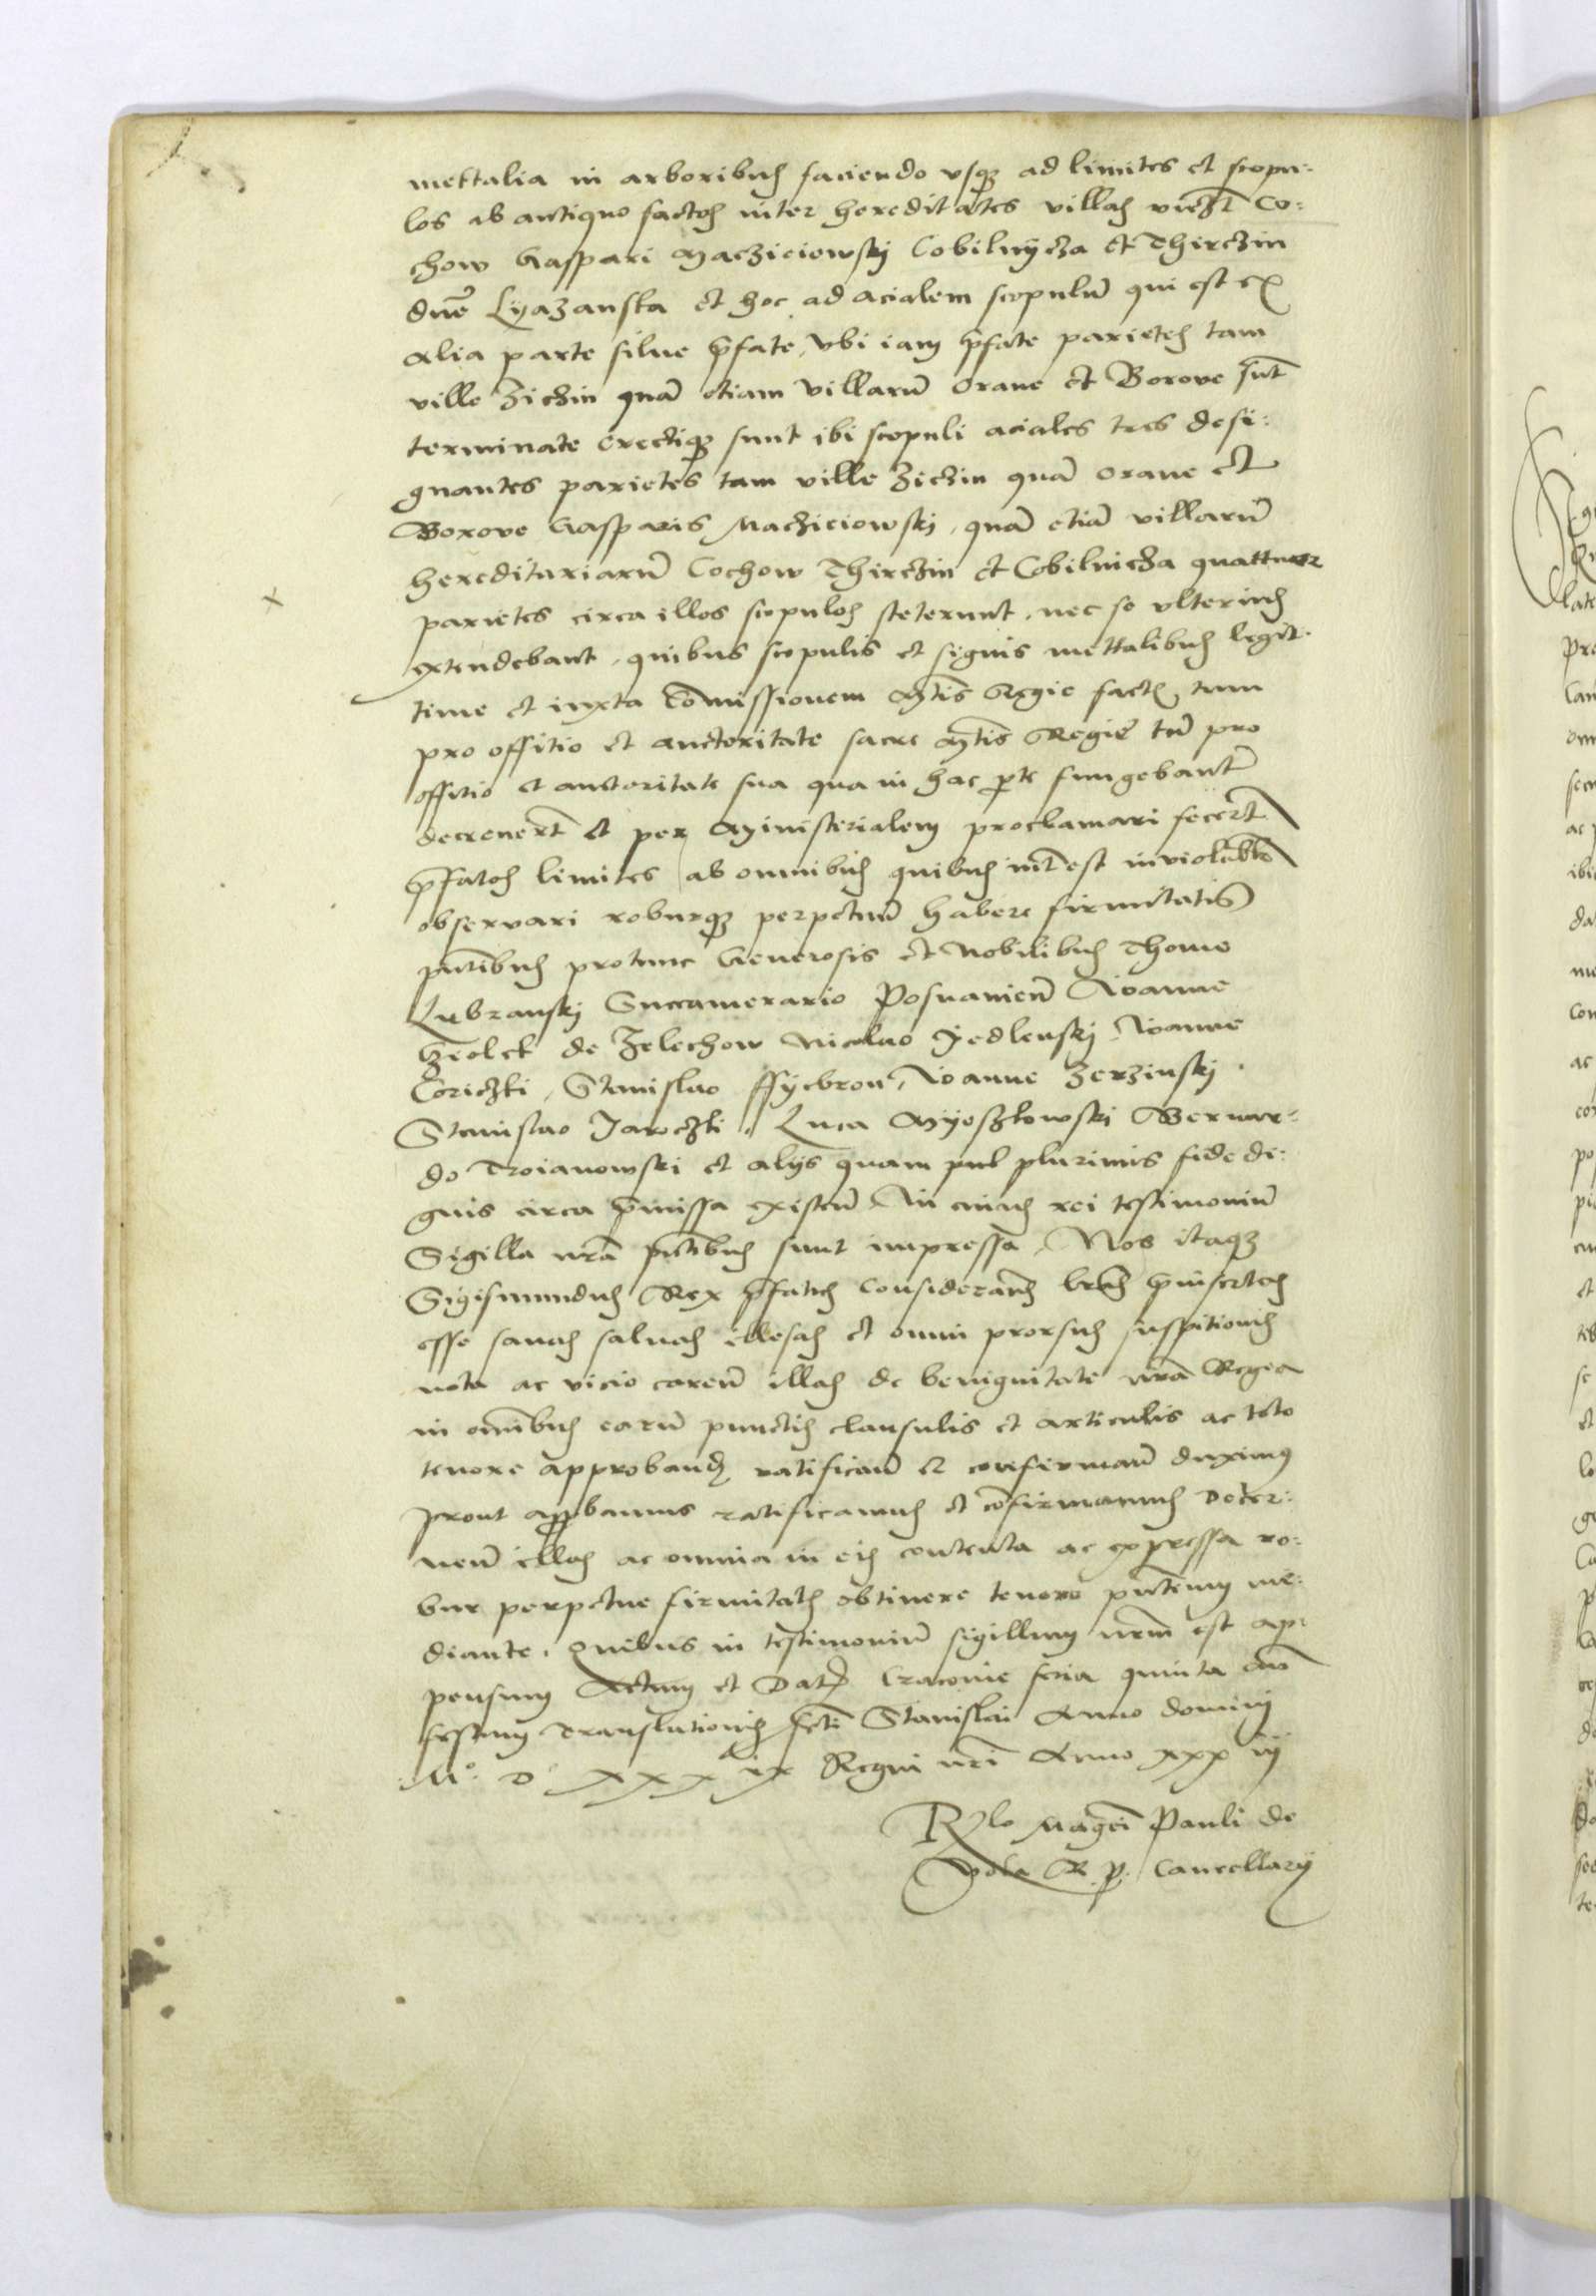 mettalia in arboribus faciendo vsq₃ ad limites et scopu:
los ab antiquo factos inter hereditates villas viczt Co:
chow Gaspari Maczieiowskj Cobilnycza et Thirczin
dne Lyazanska et hoc ad acialem scopulu qui est ex
alia parte silue pfate, vbi iam pfate parietes tam
ville Ziczin qua etiam villaru Orane et Borove sut
terminate erectiq₃ sunt ibi scopuli aciales tres desi:
gnantes parietes tam ville Ziczin qua Orane et
Borove Gasparis Macziciowskj, qua etia villaru
hereditariaru Cochow Thirczin et Cobilnicza quattuor
parietes circa illos scopulos steterunt, nec se vlterius
extendebant, quibus scopulis et signis mettalibus legit:
time et iuxta comissionem Mtis Regie facte, tum
pro offitio et auctoritate sacre Mtis Regie tu pro
offitio et auctoritate sua qua in hac pte fungebantr
decreuert et per Ministerialem proclamari fecert
pfatos limites ab omnibus quibus int est inviolabtr
observari roburq₃ perpetuu habere firmitatis
pntibus protunc Generosis et Nobilibus Thoma
Lubranskj Succamerario Posnanien Ioanne
Bzolek de Zelechow Nicolao Jedlenskj Ioanne
Coriczki, Stanislao Ffycbron, Ioanne Zerzinskj
Stanislao Jaroczki, Luca Myoszkowski Bernar:
do Troianowski et alijs quam pul plurimis fide di:
gnis circa pmissa existen In cuius rei testimoniu
Sigilla nra pntibus sunt impressa, Nos itaq₃
Sigismundus Rex pfatus Considerans lras pinsertas
esse sanas saluas illesas et omni prorsus suspitionis
nota ac vicio caren illas de benignitate nra Regia
in omibus earu punctis clausulis et articulis ac toto
tenore approband ratifican et confirman duximus
prout appbamus ratificamus et cofirmamus Decer:
nen illas ac omnia in eis contenta ac expressa ro:
bur perpetue firmitatis obtinere tenore pntium me:
diante, Quibus in testimoniu sigillum nrm est ap:
pensum Actum et Dat Cracovie feria quinta an
festum Translationis scti Stanislai Anno domini
M° D xxx ix Regni nri Anno xxx iij
Rlo Magci Pauli de
Vola R. p. Cancellarij